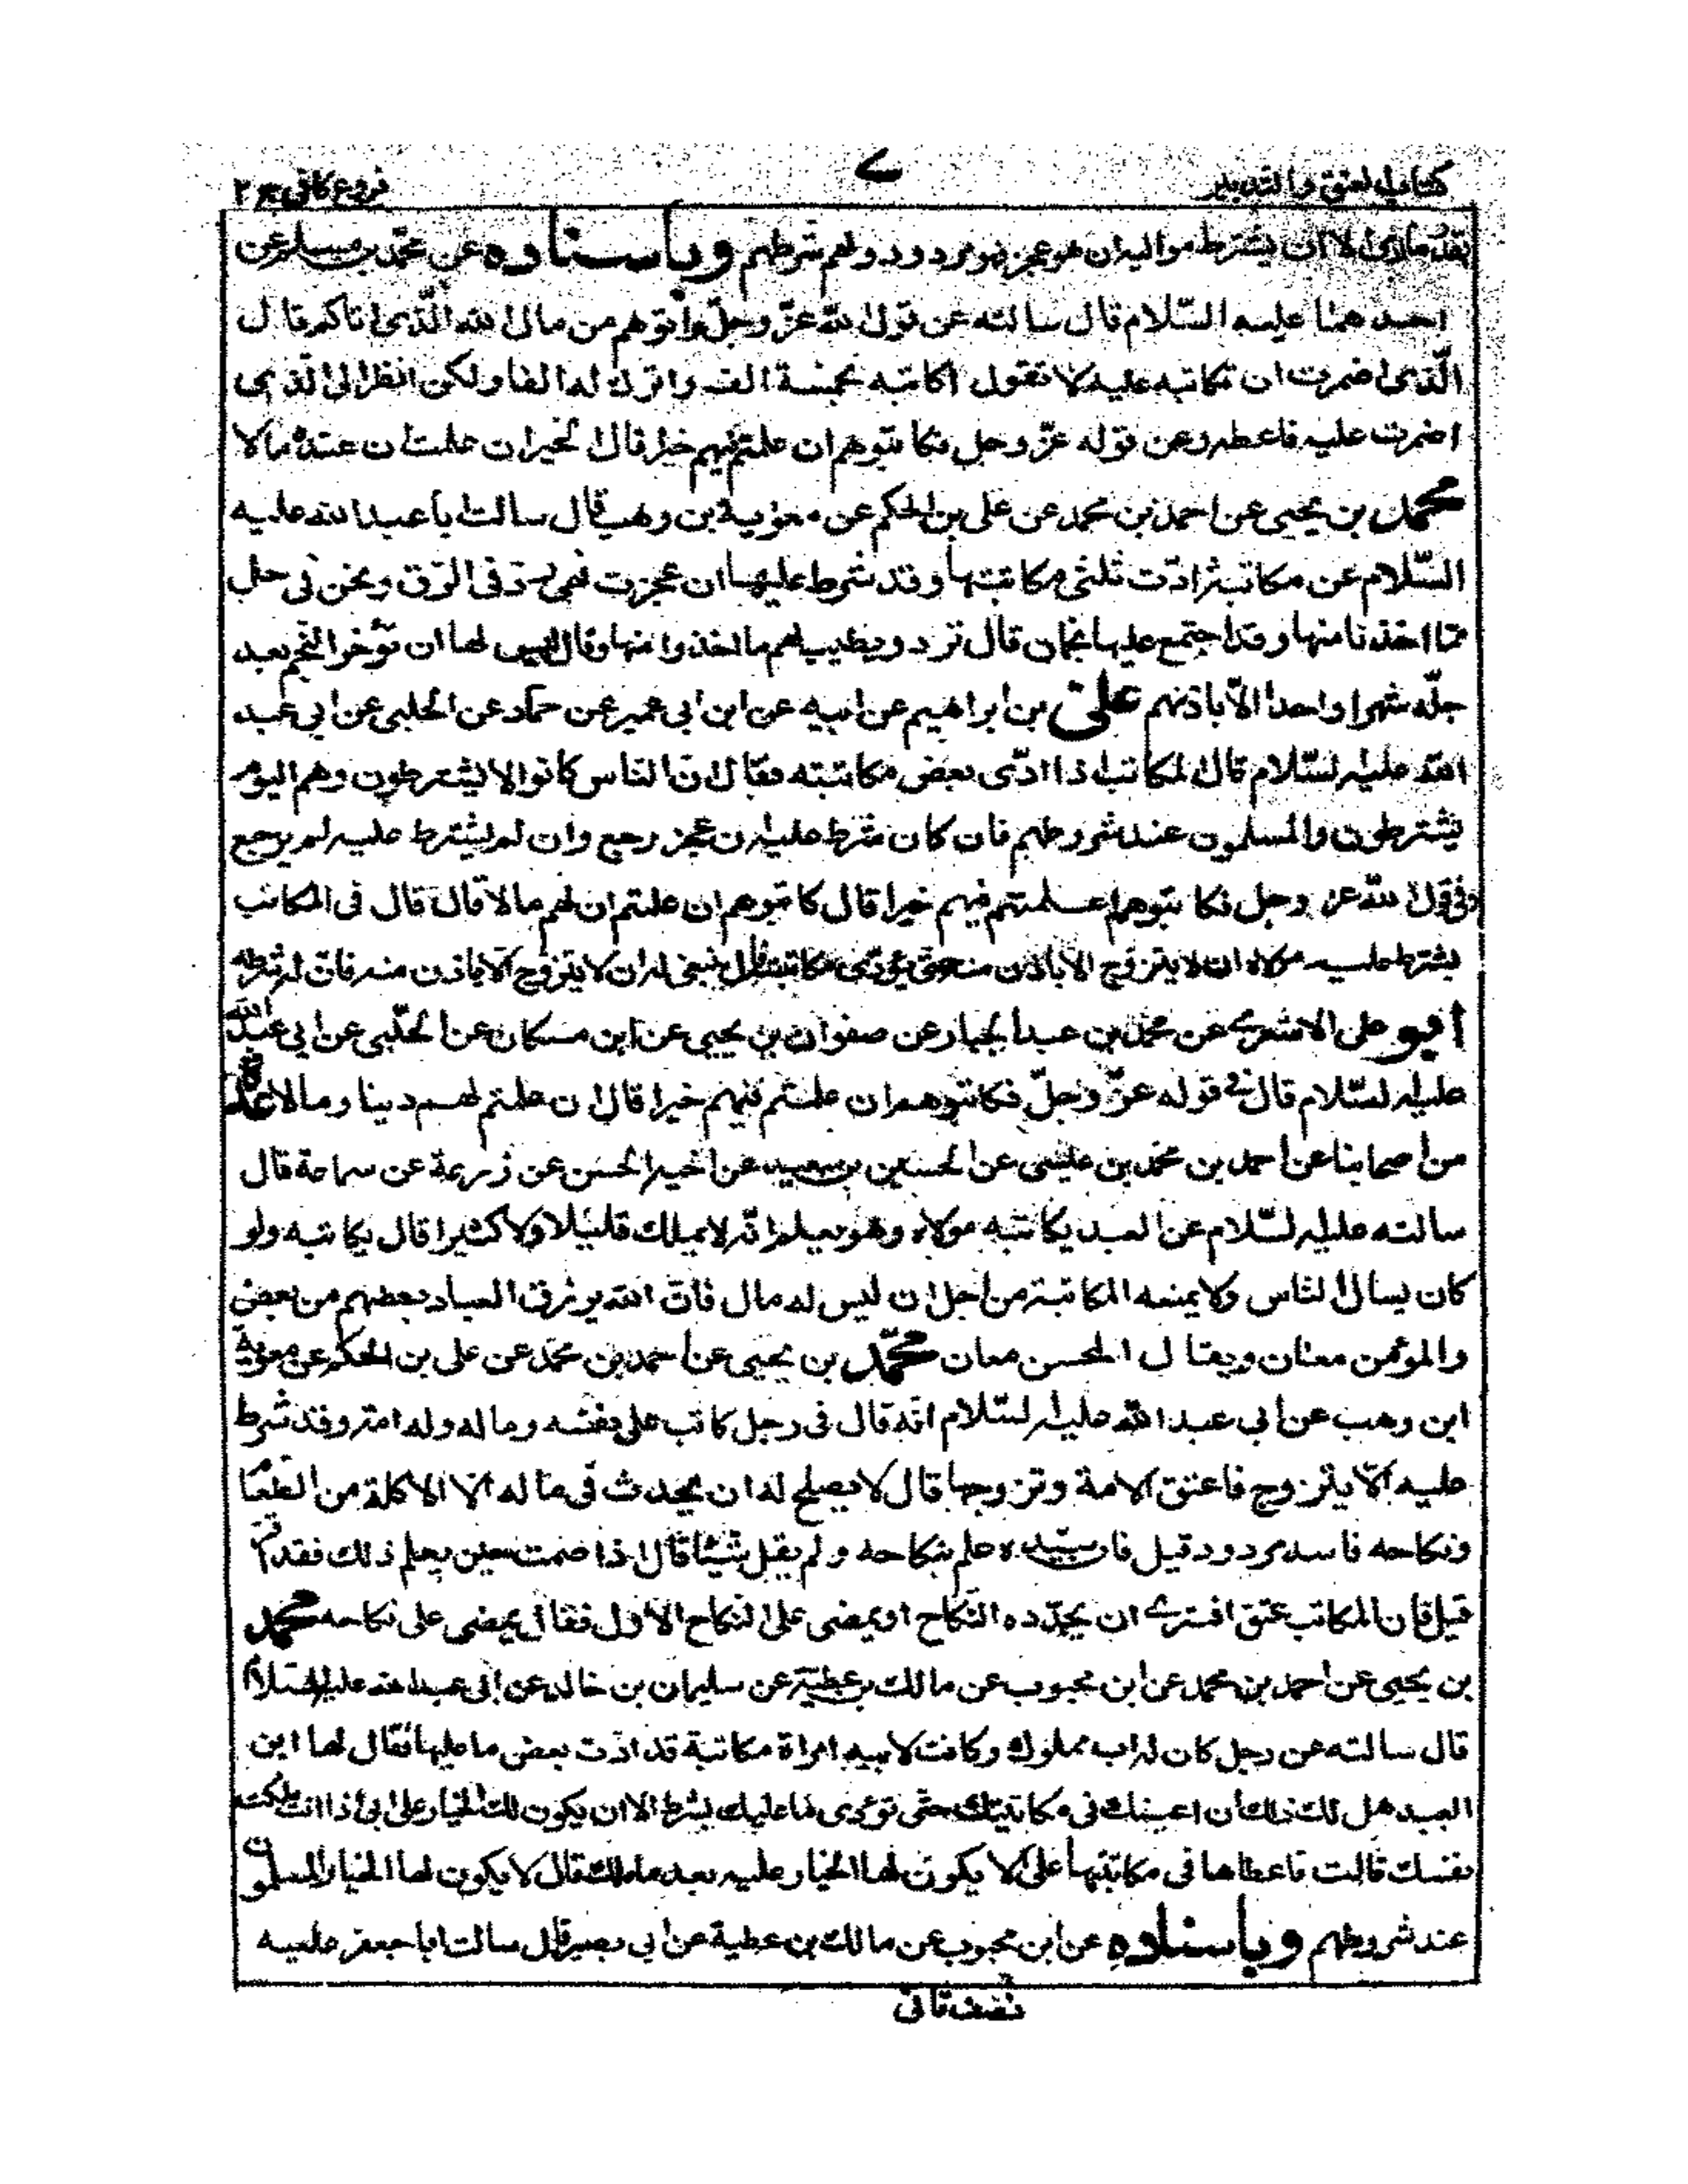 كتاب العتق والتدبير
ے
فروع كافى ج ٢
بقدر ما ادى الا ان يشترط مواليه ان هو عجز فهو مردود ولهم شرطهم وباسناده عن محمد بن مسلم عن
احدهما عليه السّلام قال سالته عن قول الله عزّ وجلّ واتوهم من مال الله الّذى اتاكم قال
الّذى اضمرت ان تكاتبه عليه لا تقول اكاتبه بخمسة الف واترك له الفا ولكن انظر الى الذى
اضمرت عليه فاعطه وعن قوله عزّ وجل فكاتبوهم ان علمتم فيهم خيرا قال الخير ان علمت ان عنده مالا
محمد بن يحيى عن احمد بن محمد عن على بن الحكم عن معوية بن وهب قال سالت ابا عبد الله عليه
السّلام عن مكاتبة ادّت ثلثى مكاتبتها وقد شرط عليها ان عجزت فهى رد فى الرّق ونحن فى حل
ممّا اخذنا منها وقد اجتمع عليها نجمان قال ترد ويطيب لهم ما اخذوا منها وقال ليس لها ان تؤخر النجم بعد
حلّه شهرا واحدا الّا باذنهم على بن ابراهيم عن ابيه عن ابن ابى عمير عن حماد عن الحلبى عن ابى عبد
الله عليه السّلام قال المكاتب اذا ادّى بعض مكاتبته فقال ان الناس كانوا لا يشترطون وهم اليوم
يشترطون والمسلمون عند شروطهم فان كان شرط عليه ان عجز رجع وان لم يشترط عليه لم يرجع
وفى قول الله عز وجل فكاتبوهم ان علمتم فيهم خيرا قال كاتبوهم ان علمتم ان لهم مالا قال قال فى المكاتب
يشترط عليه مولاه ان لا يتزوج الا باذن منه حتى يؤدى مكاتبته قال ينبغى له ان لا يتزوج الا باذن منه فان له شرطه
ابو على الاشعرى عن محمد بن عبد الجبار عن صفوان بن يحيى عن ابن مسكان عن الحلبى عن ابى عبد الله
عليه السّلام قال فى قوله عزّ وجلّ فكاتبوهم ان علمتم فيهم خيرا قال ان علمتم لهم دينا ومالا عدة
من اصحابنا عن احمد بن محمد بن عيسى عن الحسين بن سعيد عن اخيه الحسن عن زرعة عن سماعة قال
سالته عليه السّلام عن العبد يكاتبه مولاه وهو يعلم انّه لا يملك قليلا ولا كثيرا قال يكاتبه ولو
كان يسال الناس ولا يمنعه المكاتبة من اجل ان ليس له مال فان الله يرزق العباد بعضهم من بعض
والمؤمن معان ويقال المحسن معان محمّد بن يحيى عن احمد بن محمد عن على بن الحكم عن معوية
ابن وهب عن ابى عبد الله عليه السّلام انّه قال فى رجل كاتب على نفسه وماله وله امة وقد شرط
عليه الّا يتزوج فاعتق الامة وتزوجها قال لا يصلح له ان يحدث فى ماله الا الاكلة من الطعام
ونكاحه فاسد مردود قيل فان سيّده علم بنكاحه ولم يقل شيئا قال اذا صمت حين يعلم ذلك فقد اقر
قيل فان المكاتب عتق افترى ان يجدّد النكاح او يمضى على النكاح الاول فقال يمضى على نكاحه محمد
بن يحيى عن احمد بن محمد عن ابن محبوب عن مالك بن عطيّة عن سليمان بن خالد عن ابى عبد الله عليه السّلام
قال سالته عن رجل كان له اب مملوك وكانت لابيه امراة مكاتبة قد ادّت بعض ما عليها فقال لها ابن
العبد هل لك ان اعينك فى مكاتبتك حتى تؤدى ما عليك بشرط الا ان يكون لك الخيار على ابى اذا انت ملكت
نفسك قالت نعم فاعطاها فى مكاتبتها على الا يكون لها الخيار عليه بعد ما ملك قال لا يكون لها الخيار المسلمون
عند شروطهم وباسناده عن ابن محبوب عن مالك بن عطية عن ابى بصير قال سالت ابا جعفر عليه
نصف ثانى